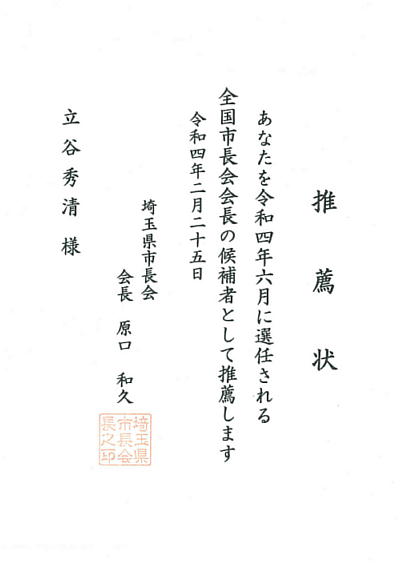 推薦状
あなたを令和四年六月に選任される
全国市長会会長の候補者として推薦します
令和四年二月二十五日
埼玉県市長会
会長 原口 和久
埼玉県
市長会
長之印
立谷秀清 様